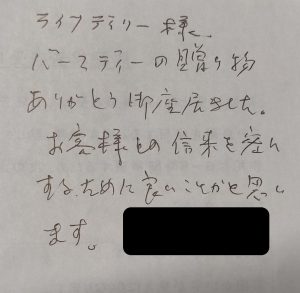 ライフデイリー様、
バースデーの贈り物
ありがとう御座居ました。
お客様との信来を密に
するために良いことかと思い
ます。